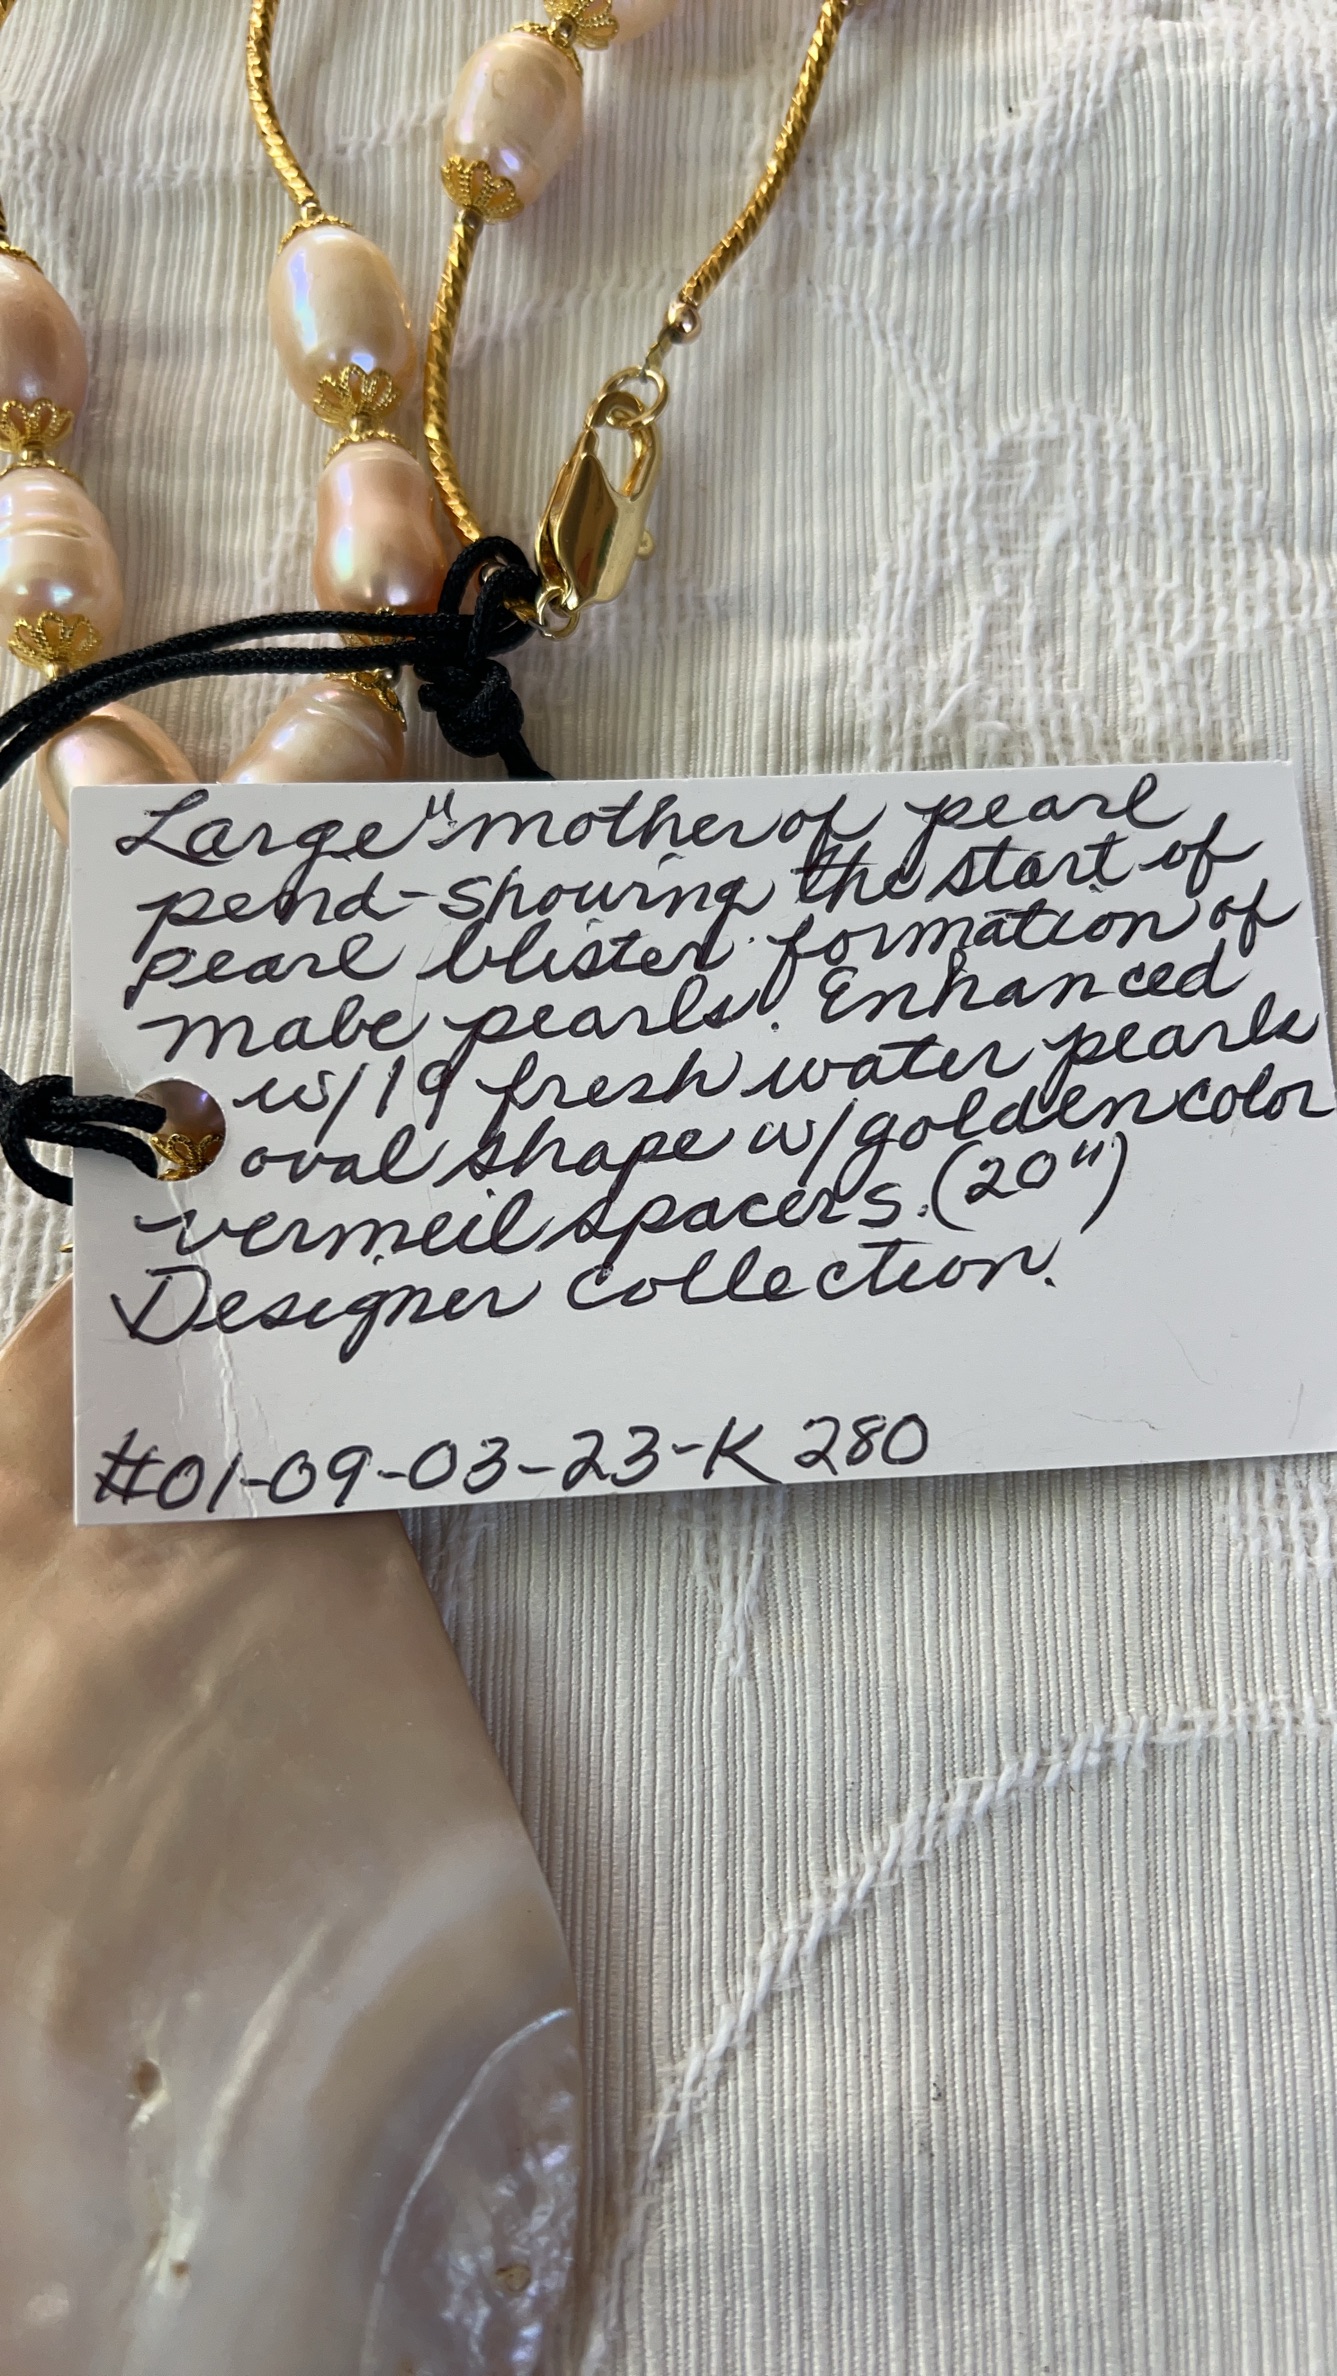 Large "mother of pearl
pend-showing the start of
pearl blister formation of
mabe pearls. Enhanced
w/19 fresh water pearls
oval shape w/golden color
vermeil spacers. (20")
Designer Collection.
#01-09-03-23-K 280